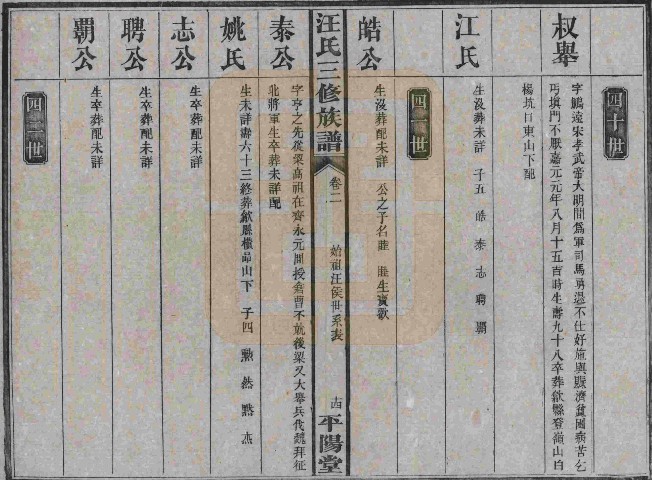 四十世
叔舉
字鵬遠宋孝武帝大明間為軍司馬引退不仕好施與賑濟貧困病苦乞
丐填門不厭嘉元元年八月十五酉時生壽九十八卒葬歙縣登嶺山白
楊坑口東山下配
江氏
生沒葬未詳 子五 皓 泰 志 聘 覇
四一世
皓公
生沒葬配未詳 公之子名 生寶歡
汪氏三修族譜
卷二
始祖汪侯世系表
十四
平陽堂
泰公
字亨之先從梁高祖在齊永元間授倉曹不就後梁又大舉兵伐魏拜征
北將軍生卒葬未詳配
姚氏
生未詳壽六十三終葬歙縣 山下 子四 勲 然 㸃 杰
志公
生卒葬配未詳
聘公
生卒葬配未詳
覇公
生卒葬配未詳
四二世